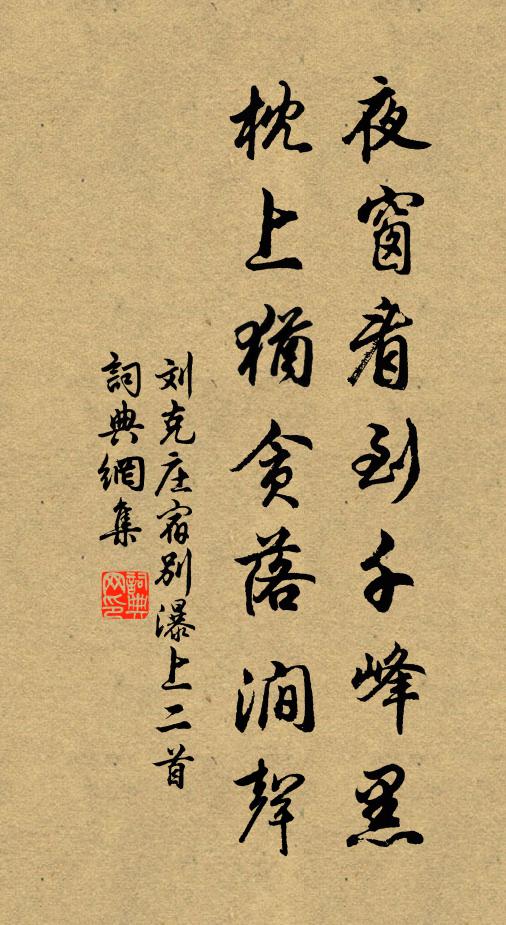 夜窗看到千峰黑
枕上猶貪落澗聲
刘克庄宿別瀑上二首
詞典網集
詞典网印